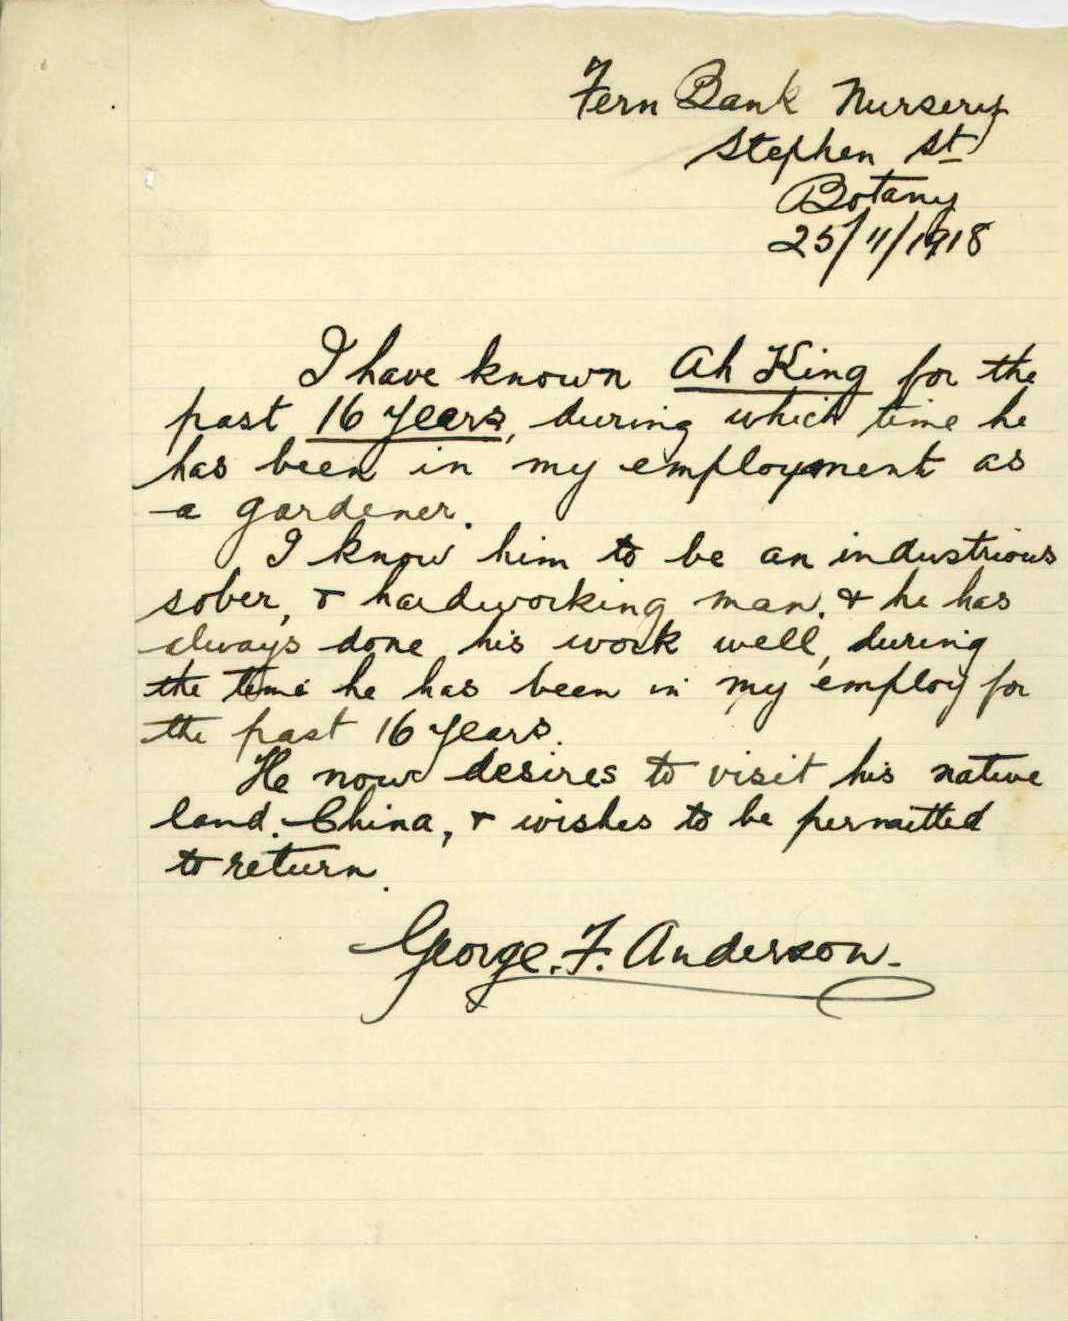 Fern Bank Nursery
Stephen St
Botany
25/11/1918
I have known Ah King for the
past 16 years, during which time he
has been in my employment as
a gardener.
I know him to be an industrious
sober, & hardworking man. & he has
always done his work well, during
the time he has been in my employ for
the past 16 years.
He now desires to visit his native
land. China, & wishes to be permitted
to return.
George. F. Anderson.